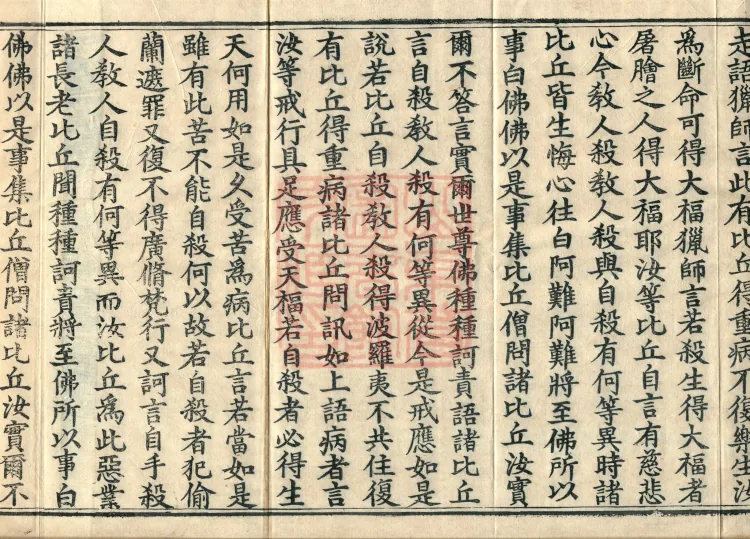 走語獵師言此有比丘得重病不復樂生汝
為斷命可得大福獵師言若殺生得大福者
屠膾之人得大福耶汝等比丘自言有慈悲
心今教人殺教人殺與自殺有何等異時諸
比丘皆生悔心往白阿難阿難將至佛所以
事白佛佛以是事集比丘僧問諸比丘汝實
爾不答言實爾世尊佛種種訶責語諸比丘
言自殺教人殺有何等異從今是戒應如是
說若比丘自殺教人殺得波羅夷不共住復
有比丘得重病諸比丘問訊如上語病者言
汝等戒行具足應受天福若自殺者必得生
天何用如是久受苦爲病比丘言若當如是
雖有此苦不能自殺何以故若自殺者犯偷
蘭遮罪又復不得廣脩梵行又訶言自手殺
人教人自殺有何等異而汝比丘爲此惡業
諸長老比丘聞種種訶責將至佛所以事白
佛佛以是事集比丘僧問諸比丘汝實爾不